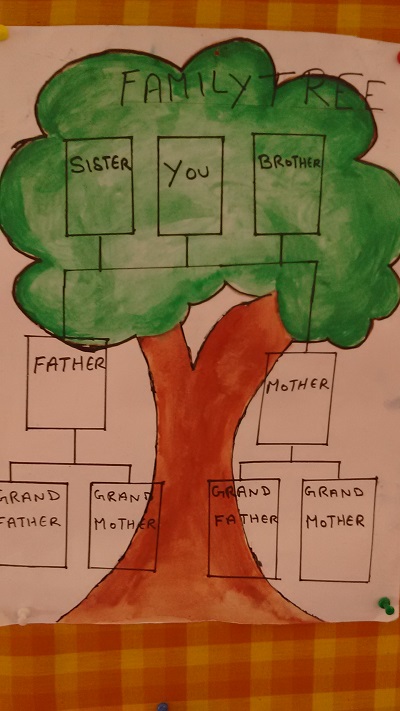 FAMILY TREE
SISTER
YOU
BROTHER
FATHER
MOTHER
GRAND
FATHER
GRAND
MOTHER
GRAND
FATHER
GRAND
MOTHER